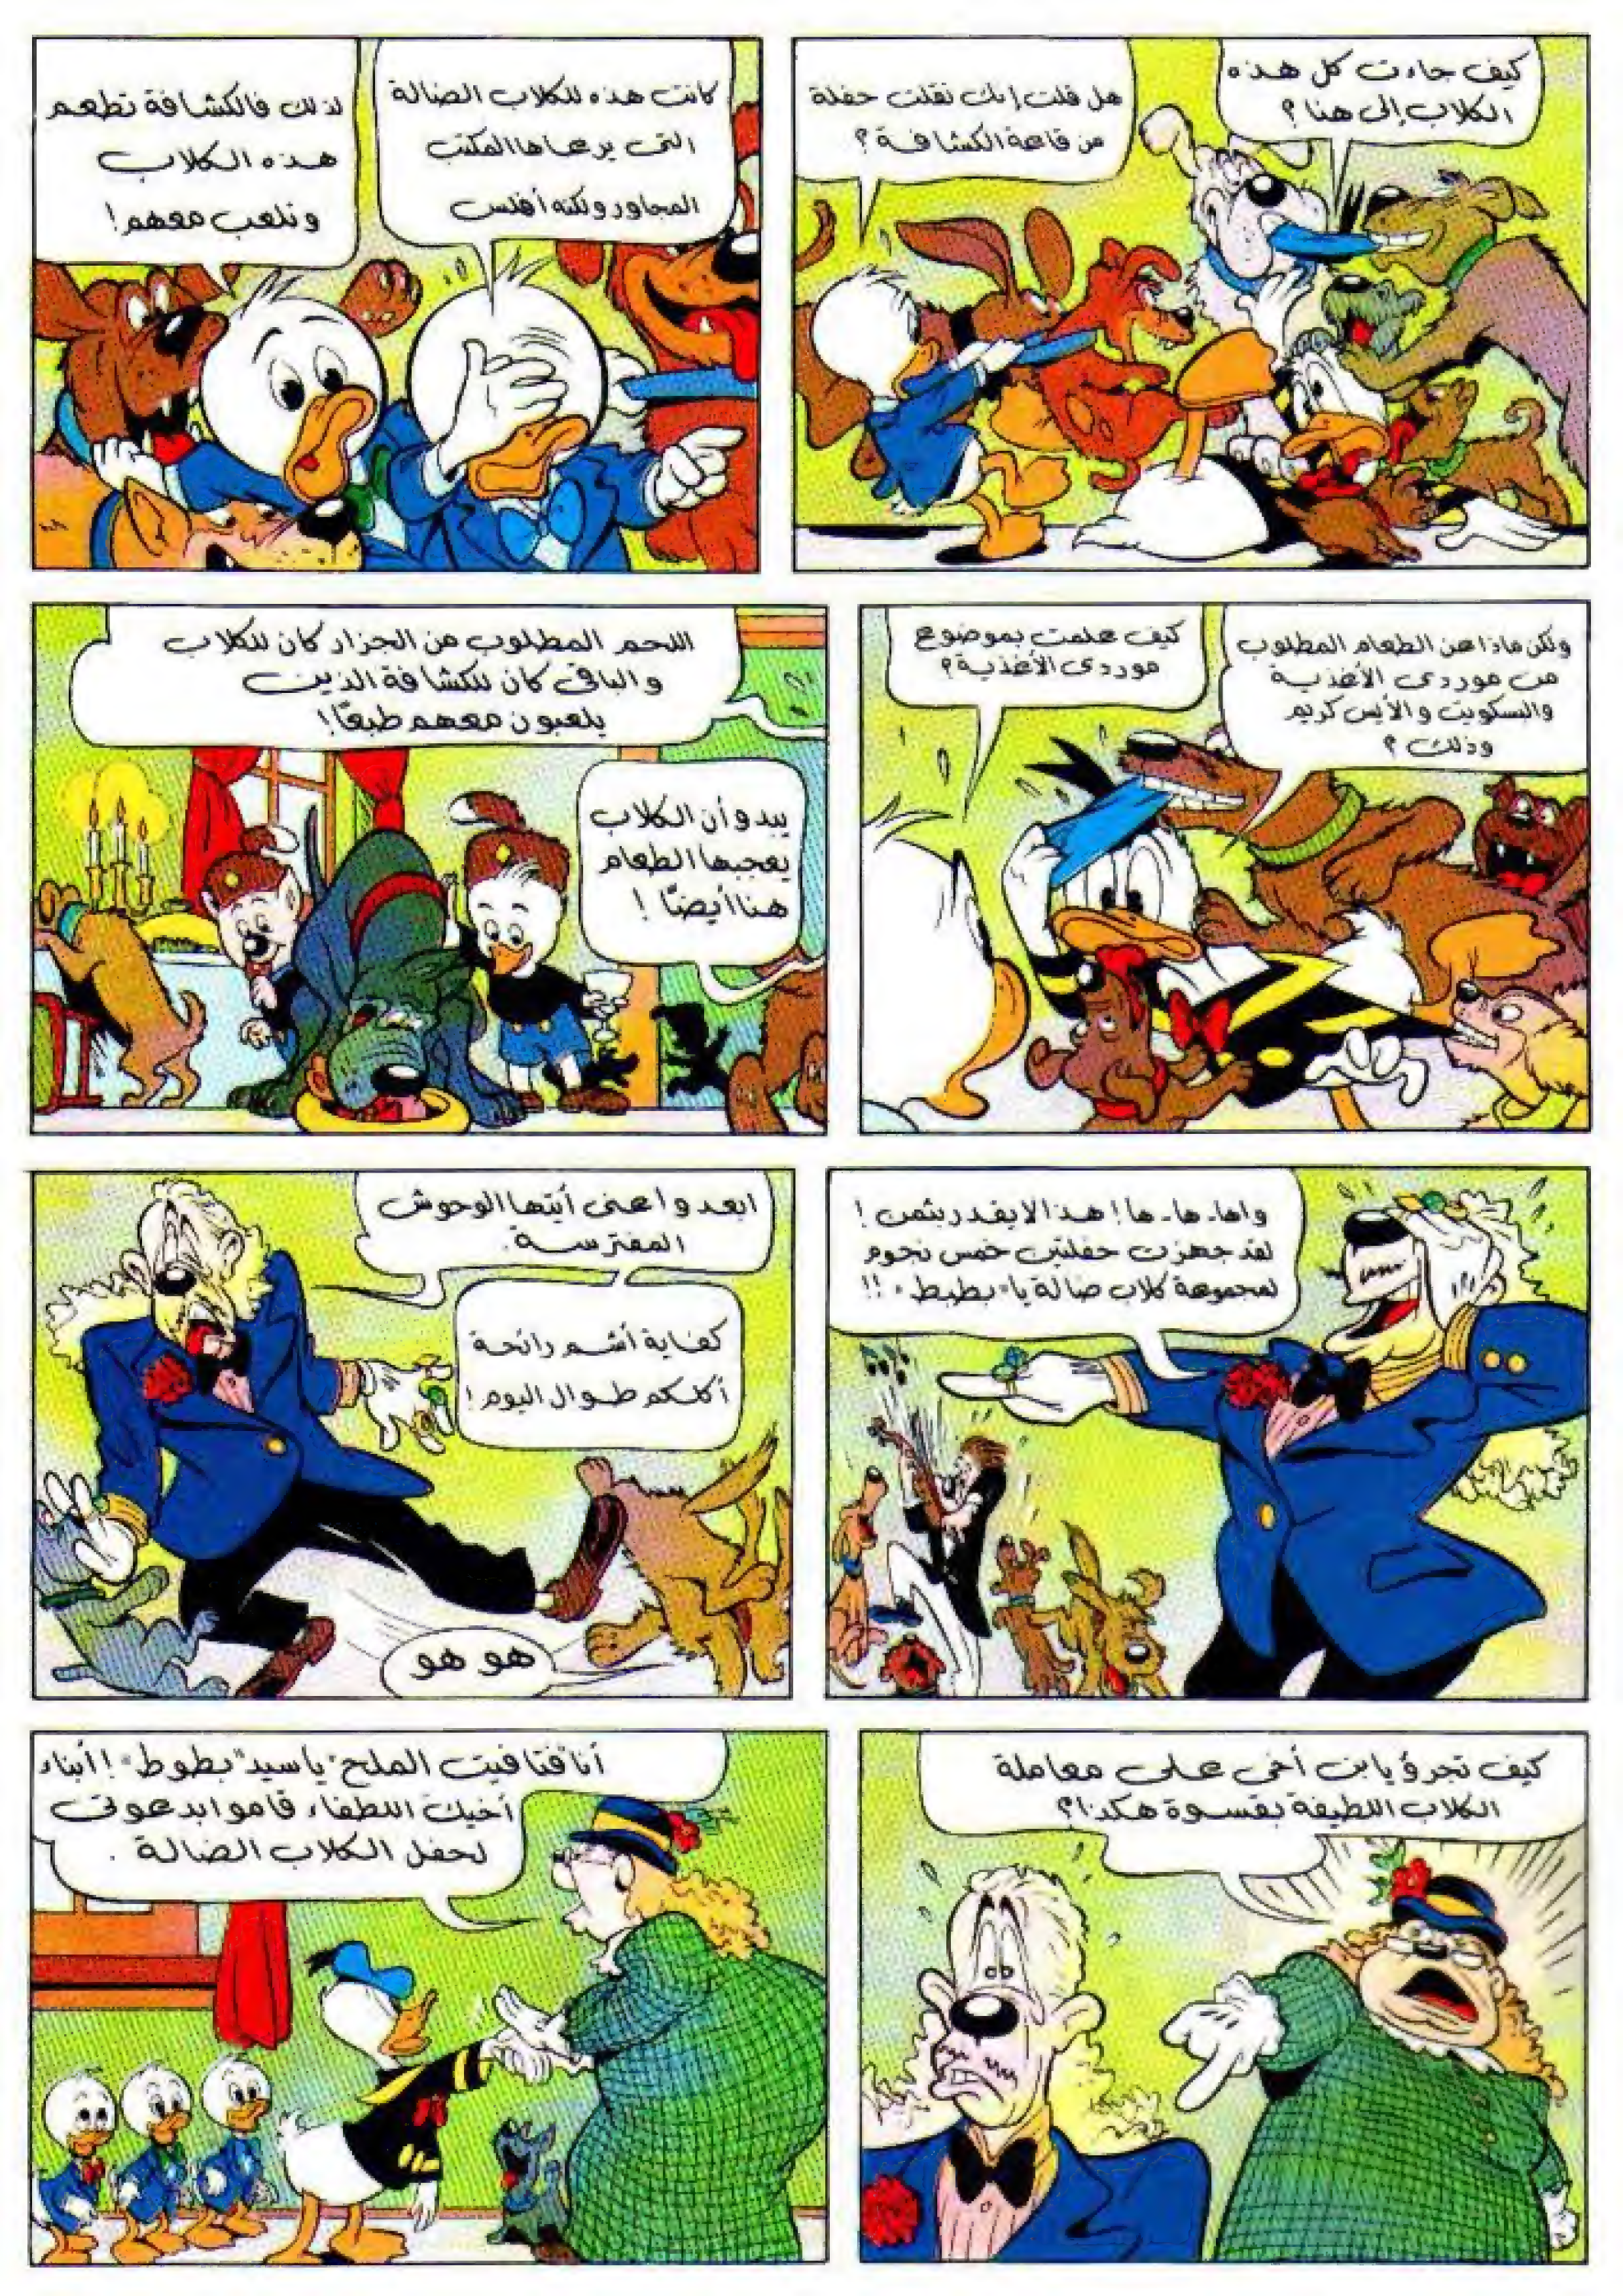 كيف جاءت كل هذه
الكلاب إلى هنا؟
هل قلت إنك نقلت حفلة
من قاعة الكشافة؟
كانت هذه للكلاب الضالة
التى يرعاها المكتب
المجاور ولكنه أفلس
لذلك فالكشافة تطعم
هذه الكلاب
ونلعب معهم!
ولكن ماذا عن الطعام المطلوب
من موردى الأغذية
والبسكويت والأيس كريم
وذلك؟
كيف علمت بموضوع
موردى الأغذية؟
اللحم المطلوب من الجزار كان للكلاب
والباقى كان للكشافة الذين
يلعبون معهم طبعًا!
يبدو أن الكلاب
يعجبها الطعام
هنا أيضًا!
واها- ها- ها! هذا لا يقدر بثمن!
لقد جهزت حفلتين خمس نجوم
لمجموعة كلاب ضالة يا "بطبط"!!
ابعدوا عنى أيتها الوحوش
المفترسة.
كفاية أشم رائحة
أكلكم طوال اليوم!
هو هو
كيف تجرؤ يا بن أخى على معاملة
الكلاب اللطيفة بقسوة هكذا؟
أنا "فتافيت الملح" يا سيد "بطوط"! أبناء
أخيك اللطفاء قاموا بدعوتى
لحفل الكلاب الضالة.